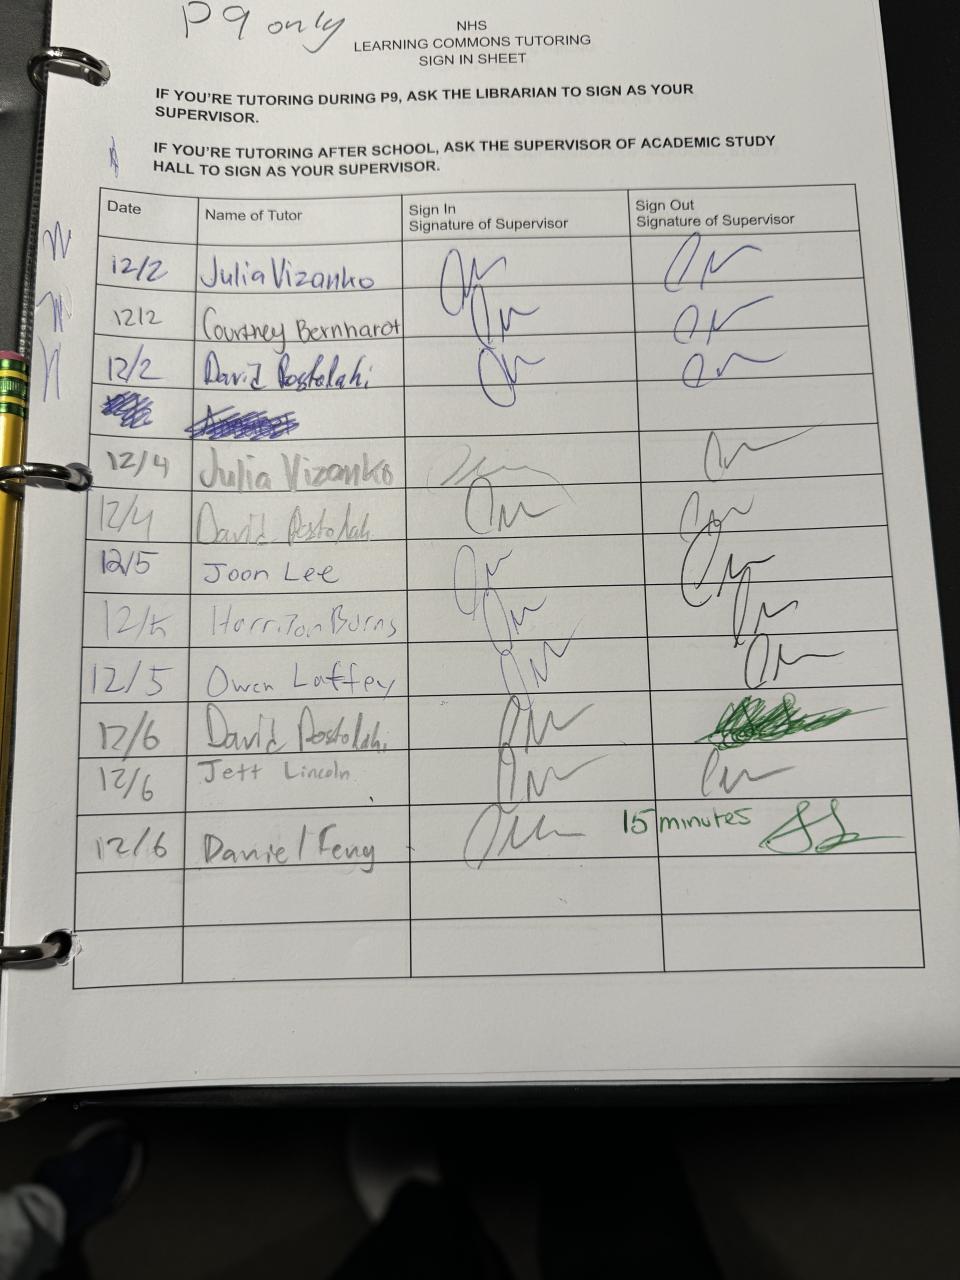 P9 only
NHS
LEARNING COMMONS TUTORING
SIGN IN SHEET
IF YOU'RE TUTORING DURING P9, ASK THE LIBRARIAN TO SIGN AS YOUR
SUPERVISOR.
IF YOU'RE TUTORING AFTER SCHOOL, ASK THE SUPERVISOR OF ACADEMIC STUDY
HALL TO SIGN AS YOUR SUPERVISOR.
Date Name of Tutor Sign In Signature of Supervisor Sign Out Signature of Supervisor
12/2 Julia Vizanko
12/2 Courtney Bernhardt
12/2 David Postolahi
12/4 Julia Vizanko
12/4 David Postolahi
12/5 Joon Lee
12/5 Harrison Burns
12/5 Owen Laffey
12/6 David Postolahi
12/6 Jett Lincoln
12/6 Daniel Feng 15 minutes